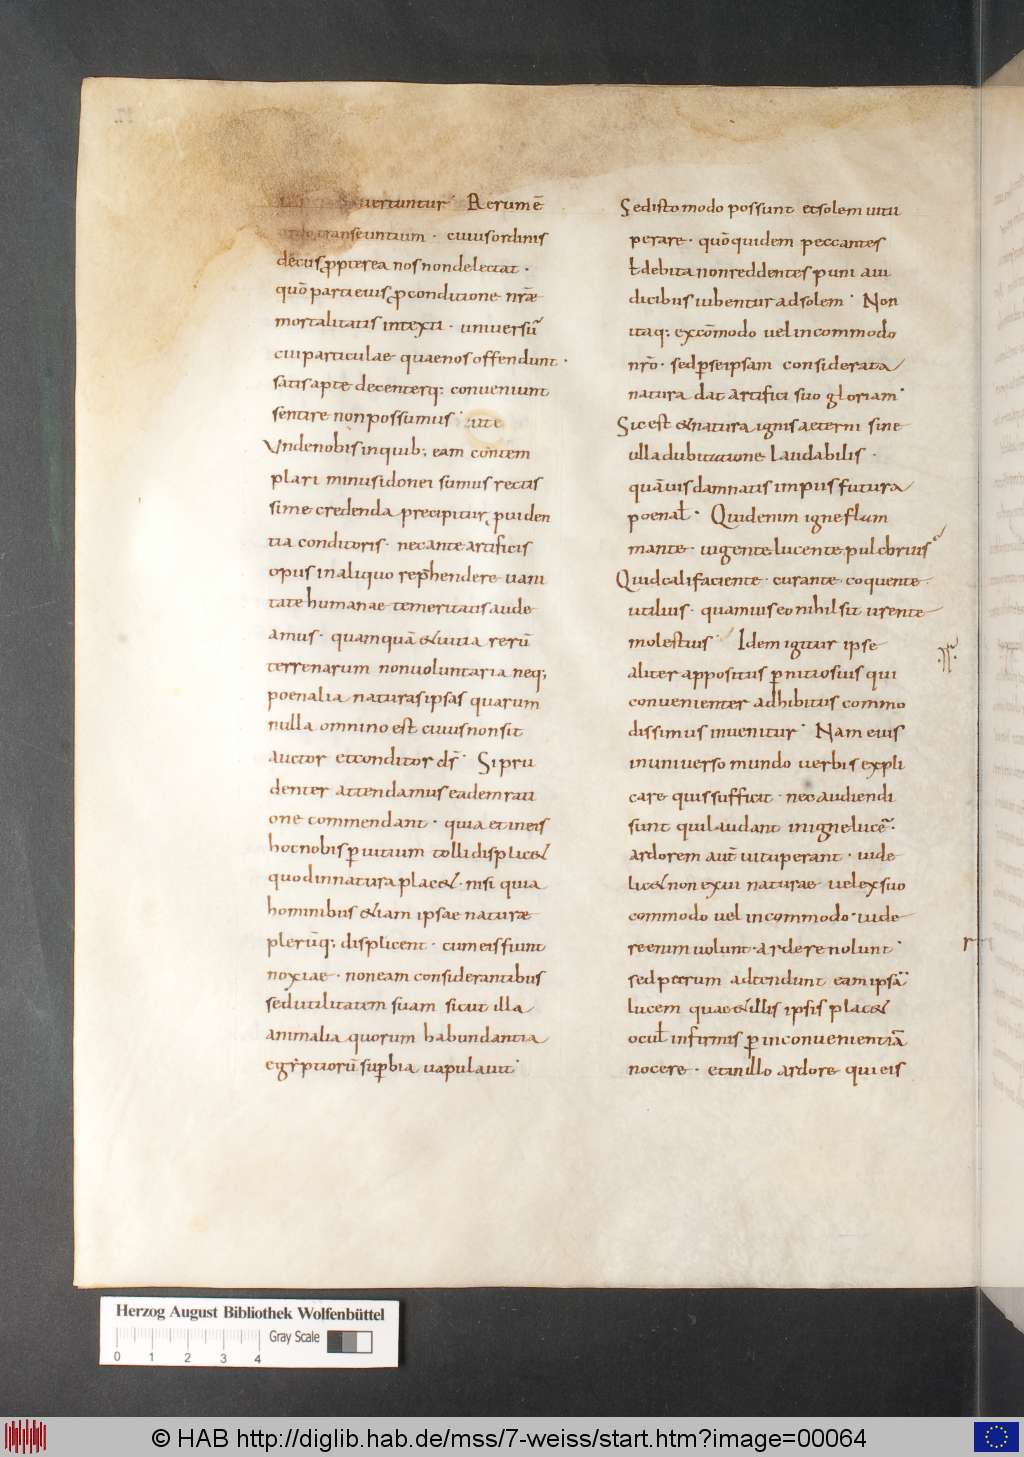 uertuntur· Rerum ē
ordo transeuntium · cuius ordinis
decus ꝓpterea nos non delectat ·
quō parti eius ꝓ conditione nr̄æ
mortalitatis intexti · universū
cui particulae quae nos offendunt ·
satis apte decenterq; conueniunt
sentire non possumus ·
Unde nobis in quib; eam contem
plari minus idonei sumus rectis
sime credenda precipitur puiden
tia conditoris · nec ante artificis
opus in aliquo rep̄hendere uani
tate humanae temeritatis aude
amus · quamquā & uitia rerū
terrenarum non uoluntaria neq;
poenalia naturas ipsas quarum
nulla omnino est cuius non sit
auctor et conditor d̄s · Si pru
denter attendamus eadem rati
one commendant · quia et in eis
hoc nobis ꝑ uitium tolli displic&
quod in natura plac& · nisi quia
hominibus &iam ipsae naturæ
plerūq; displicent · cum eis fiunt
noxiae · non eam considerantibus
sed utilitatem suam sicut illa
animalia quorum habundantia
egyptiorū suꝑbia uapulauit ·
Sed isto modo possunt et solem uitu
perare · quō quidem peccantes
ł debita non reddentes puni a iu
dicibus iubentur ad solem · Non
itaq; ex cōmodo uel incommodo
nr̄o · sed ꝑ se ipsam considerata
natura dat artifici suo gloriam ·
Sic est & natura ignis aeterni sine
ulla dubitatione laudabilis ·
quāuis damnatis impiis futura
poenał · Quid enim igne flam
mante · uigente lucente pulchrius
Quid califaciente · curante · coquente ·
utilius · quamuis eo nihil sit urente
molestius · Idem igitur ipse
aliter appositus ꝑnitiosius qui
conuenienter adhibitus commo
dissimus inuenitur · Nam eius
in uniuerso mundo uerbis expli
care quis sufficit · nec audiendi
sunt qui laudant in igne lucē ·
ardorem aut̄ uituperant · uide
lic& non ex ui naturae uel ex suo
commodo uel incommodo · uide
re enim uolunt · ardere nolunt ·
sed parum adtendunt eam ipsā
lucem quae & illis ipsis plac&
ocuł infirmis ꝑ inconuenientiā
nocere · et in illo ardore qui eis
Herzog August Bibliothek Wolfenbüttel
Gray Scale
0 1 2 3 4
© HAB http://diglib.hab.de/mss/7-weiss/start.htm?image=00064